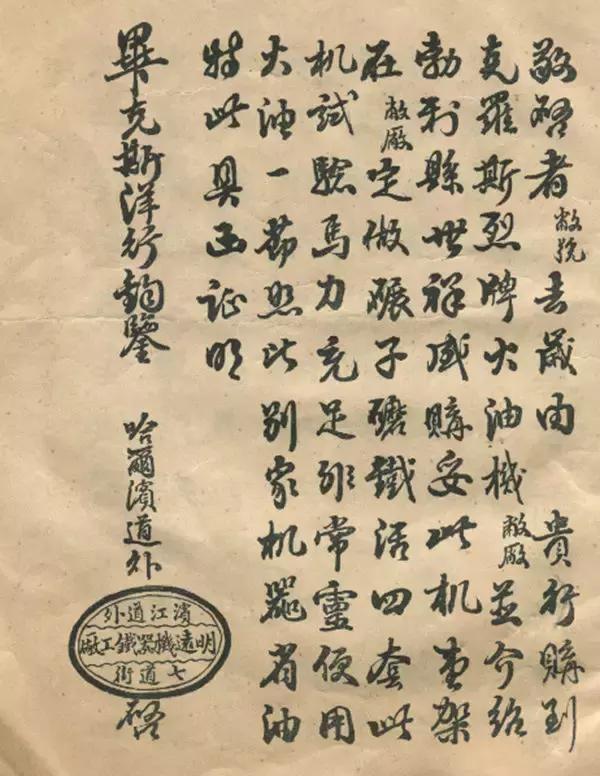 敬啓者敝號去歲由貴行購到
克羅斯烈牌火油機敝廠並介紹
勃利縣世祥盛購妥此机壹架
在敝廠定做碾子磨鐵活四套此
机試驗馬力充足非常靈便用
火油一節照比別家机器省油
特此具函証明
畢克斯洋行鈞鑒
哈爾濱道外
濱江道外
明遠機器鐵工廠
七道街
啓